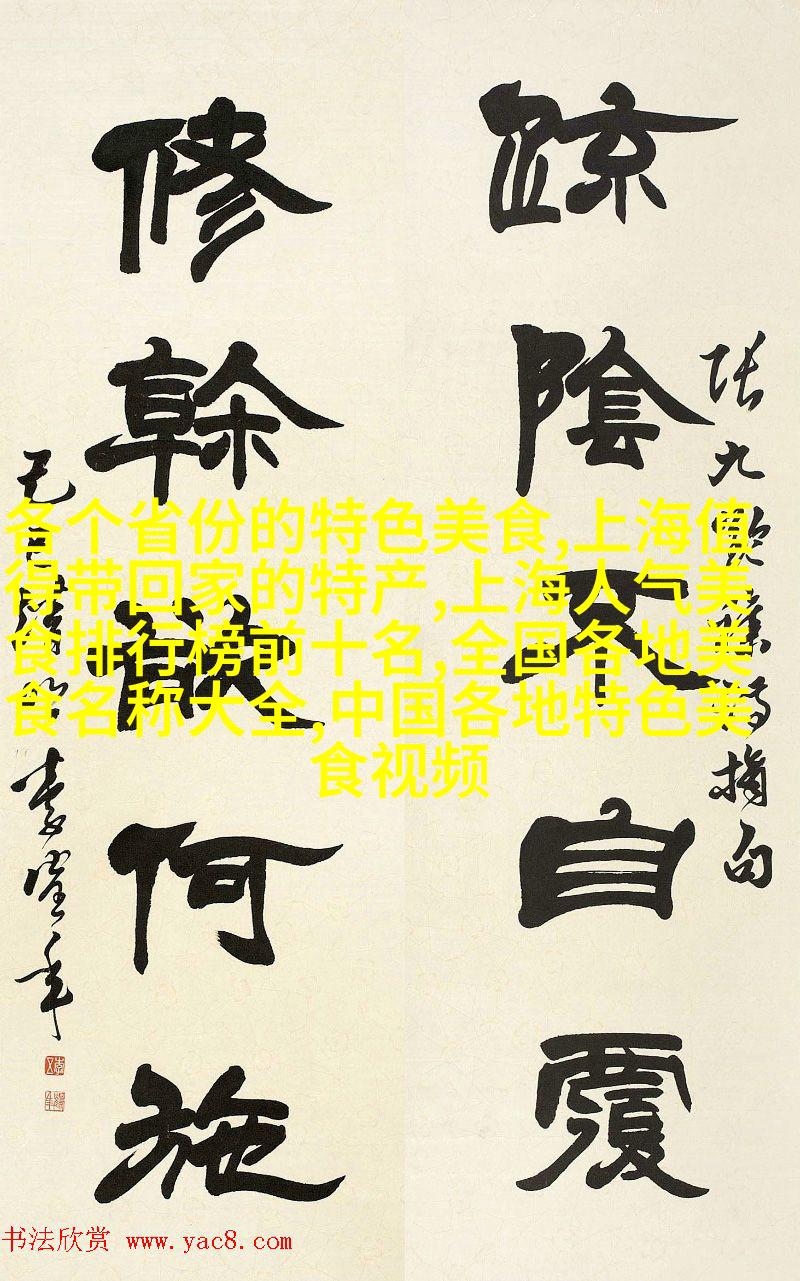 张九龄雜詩摘句
疏陰不自覆
修幹欲何施
各个省份的特色美食,上海值
得带回家的特产,上海人气美
食排行榜前十名,全国各地美
食名称大全,中国各地特色美
食视频
书法欣赏 www.yac8.com